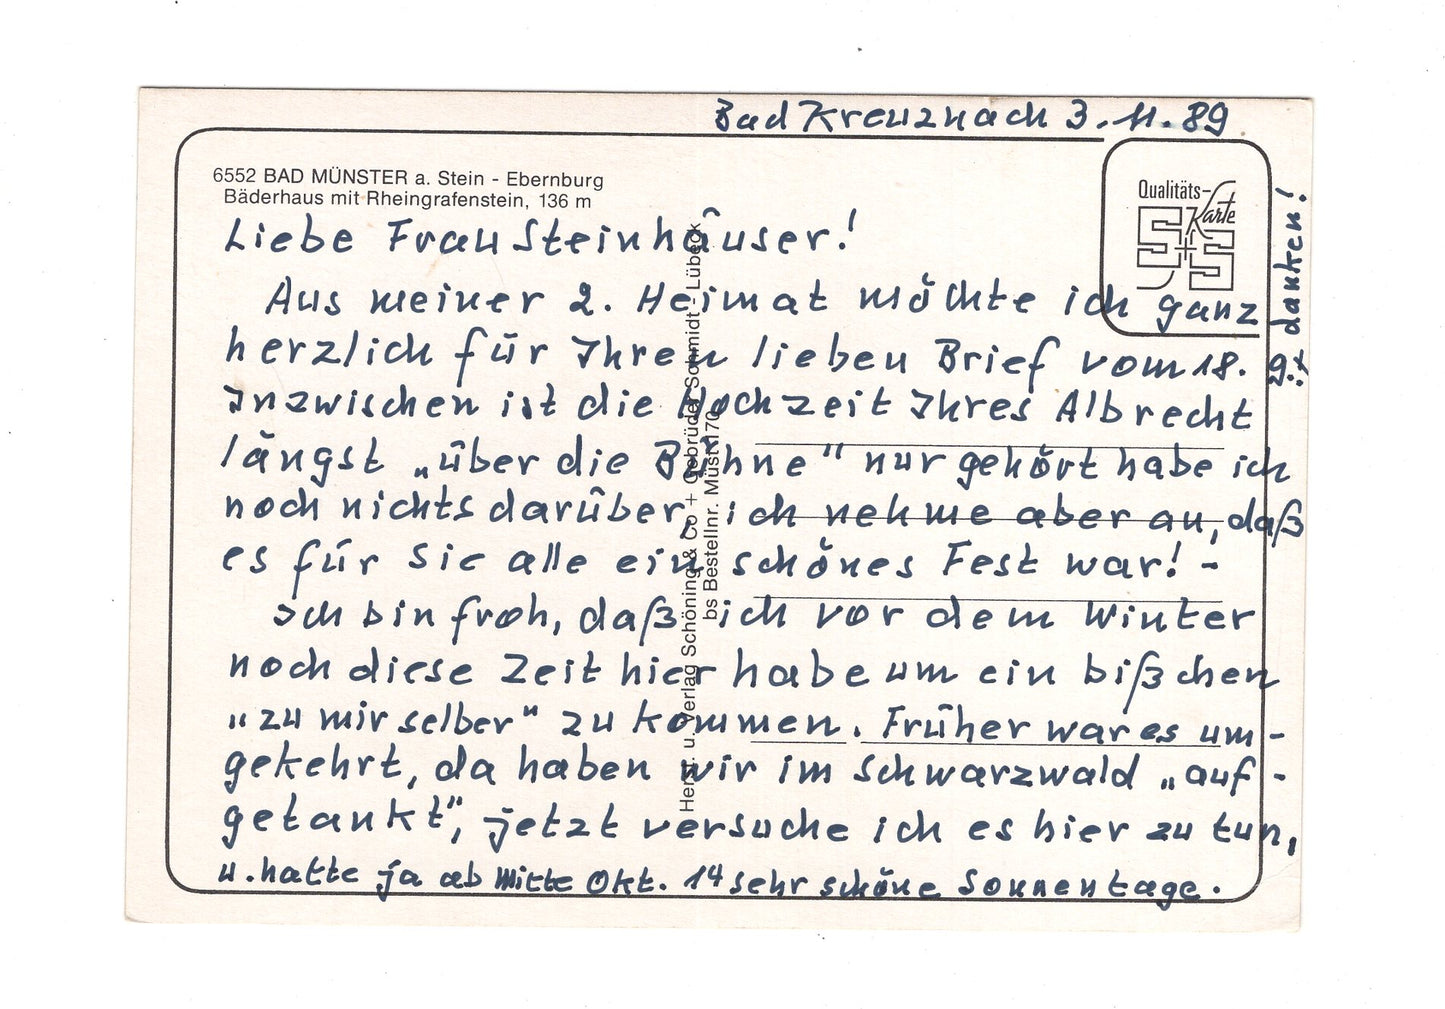 Bad Kreuznach 3.11.89
6552 BAD MÜNSTER a. Stein - Ebernburg
Bäderhaus mit Rheingrafenstein, 136 m
Qualitäts-
Karte
S+S
Liebe Frau Steinhäuser!
Aus meiner 2. Heimat möchte ich ganz
herzlich für Ihren lieben Brief vom 18. 9. x
danken!
Inzwischen ist die Hochzeit Ihres Albrecht
längst „über die Bühne" nur gehört habe ich
noch nichts darüber, ich nehme aber an, daß
es für Sie alle ein schönes Fest war! -
Ich bin froh, daß ich vor dem Winter
noch diese Zeit hier habe um ein bißchen
"zu mir selber" zu kommen. Früher war es um-
gekehrt, da haben wir im Schwarzwald „auf-
getankt", jetzt versuche ich es hier zu tun,
u. hatte ja ab Mitte Okt. 14 sehr schöne Sonnentage.
Herst. u. Verlag Schöning & Co + Gebrüder Schmidt - Lübeck
bs Bestellnr. Müst 170